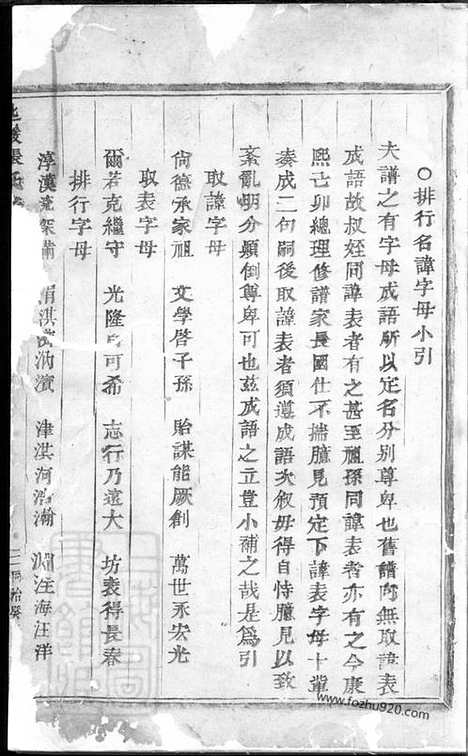 ○排行名諱字母小引
夫譜之有字母成語所以定名分別尊卑也舊譜向無取諱表
成語故叔姪同諱表者有之甚至祖孫同諱表者亦有之今康
熙己卯總理修譜家長國仕不揣臆見預定下諱表字母十輩
湊成二句嗣後取諱表者須遵成語次叙毋得自恃臆見以致
紊亂明分顛倒尊卑可也茲成語之立豈小補之哉是為引
取諱字母
尙德承家祖 文學啓子孫 貽謀能厥創 萬世永宏光
取表字母
爾若克繼守 光隆 可希 志行乃遠大 坊表得長春
排行字母
淳漢 深浦 淇 濱 津淇河 瀚 注海汪洋
張氏
同治癸
www.fozhu920.com